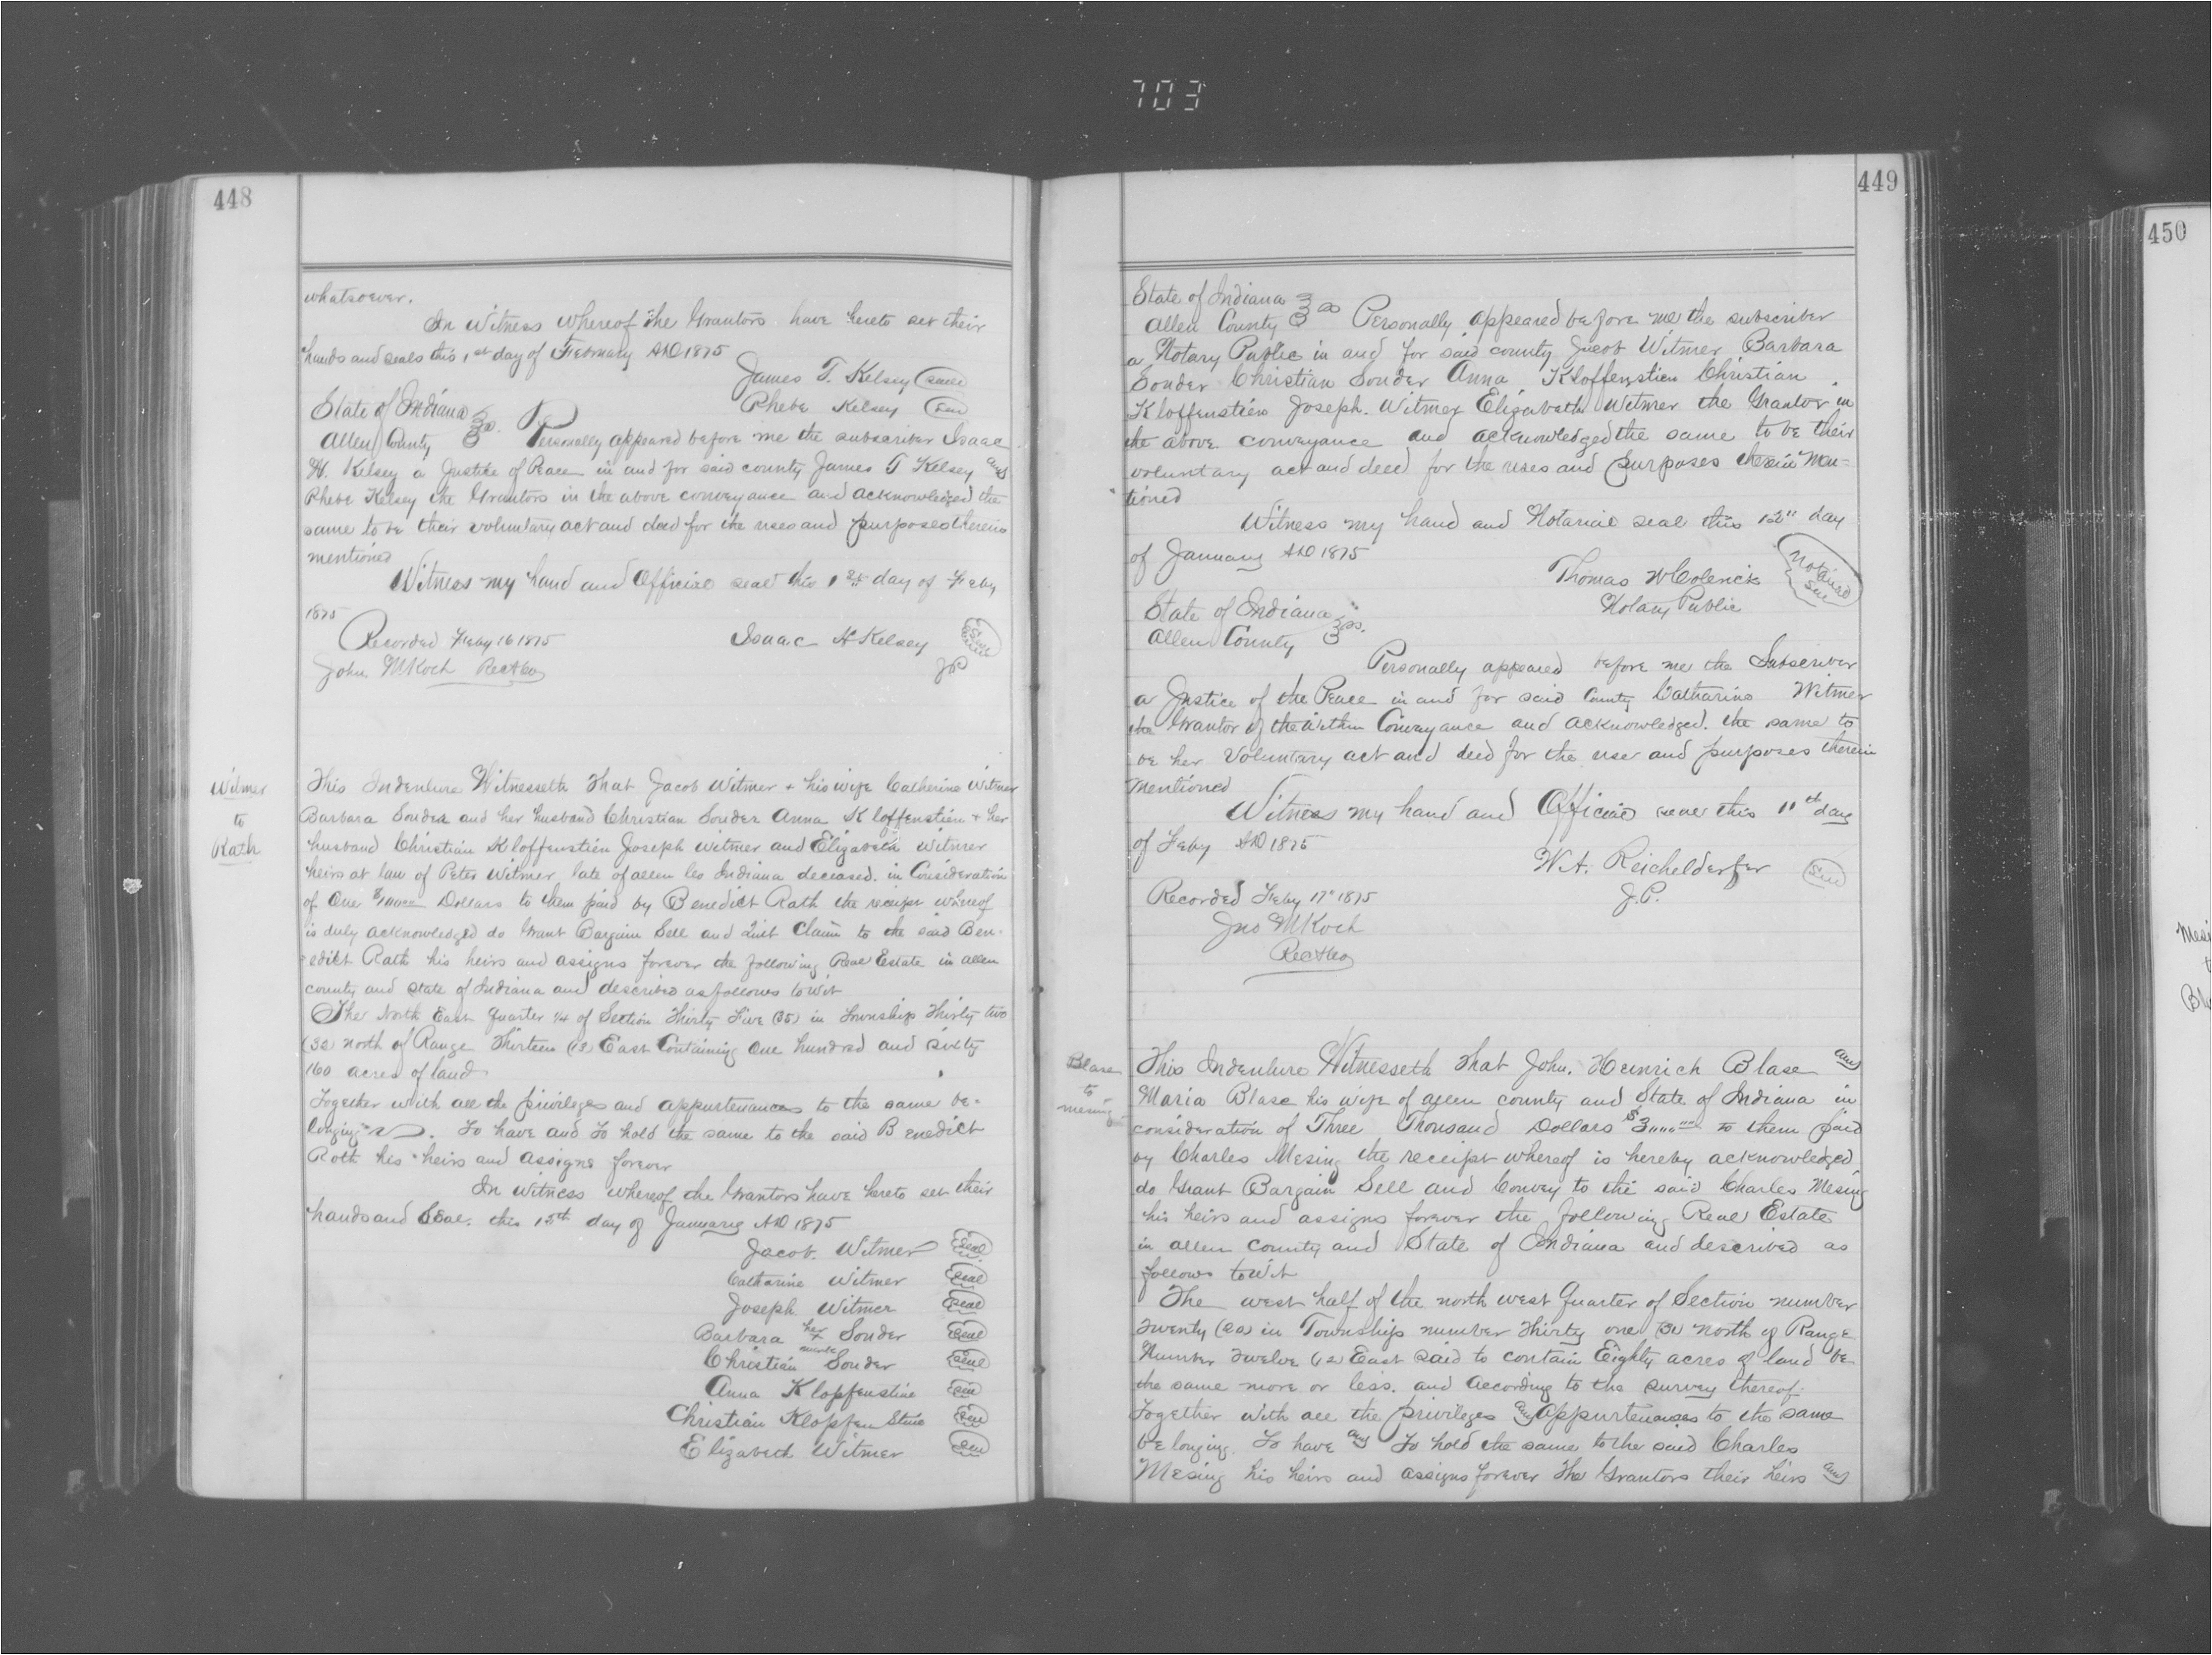 703
448
whatsoever.
In Witness whereof the Grantors have hereto set their
hands and seals this 1st day of February AD 1875
James T. Kelsey (seal)
Phebe Kelsey (seal)
State of Indiana
Allen County ss. Personally appeared before me the subscriber Isaac
H. Kelsey a Justice of Peace in and for said county James T Kelsey and
Phebe Kelsey the Grantors in the above conveyance and acknowledged the
same to be their voluntary act and deed for the uses and purposes therein
mentioned
Witness my hand and Official seal this 1st day of Feby
1875
Recorded Feby 16 1875 Isaac H Kelsey
John M Koch RecACo JP
Witmer
to
Rath
This Indenture Witnesseth That Jacob Witmer + his wife Catherine Witmer
Barbara Souder and her husband Christian Souder Anna Kloffenstien + her
husband Christian Kloffenstien Joseph Witmer and Elizabeth Witmer
heirs at law of Peter Witmer late of allen Co Indiana deceased. in Consideration
of One Dollars to them paid by Benedict Rath the receipt whereof
is duly acknowledged do Grant Bargain Sell and Quit Claim to the said Ben-
-edict Rath his heirs and assigns forever the following Real Estate in allen
county and State of Indiana and described as follows towit
The North East quarter 1/4 of Section Thirty Five (35) in Township Thirty two
(32) north of Range Thirteen (13) East Containing One hundred and sixty
160 acres of land
Together with all the privileges and appurtenances to the same be-
longing. To have and to hold the same to the said Benedict
Roth his heirs and assigns forever
In Witness whereof the Grantors have hereto set their
hands and Seal. this 12th day of January AD 1875
Jacob. Witmer Seal
Catharine Witmer Seal
Joseph Witmer Seal
Barbara her x Souder Seal
mark
Christian Souder Seal
Anna Klopfenstine Seal
Christian Klopfenstine Seal
Elizabeth Witmer Seal
449
State of Indiana
Allen County ss Personally appeared before me the subscriber
a Notary Public in and for said county Jacob Witmer Barbara
Souder Christian Souder Anna Kloffenstien Christian
Kloffenstien Joseph. Witmer Elizabeth Witmer the Grantor in
the above conveyance and acknowledged the same to be their
voluntary act and deed for the uses and purposes therein Men=
tioned
Witness my hand and Notarial seal this 12" day
of January AD 1875
Thomas W Colerick Notarial Seal
Notary Public
State of Indiana
Allen County ss.
Personally appeared before me the Subscriber
a Justice of the Peace in and for said County Catharine Witmer
the Grantor of the within Conveyance and acknowledged. the same to
be her Voluntary act and deed for the use and purposes therein
Mentioned
Witness my hand and Official seal this 11th day
of Feby AD 1875
W.A. Reichelderfer Seal
Recorded Feby 17" 1875 J.P.
Jno M Koch
RecACo
Blase
to
Mesing
This Indenture Witnesseth That John. Heinrich Blase and
Maria Blase his wife of allen county and State of Indiana in
consideration of Three Thousand Dollars to them paid
by Charles Mesing the receipt whereof is hereby acknowledged
do Grant Bargain Sell and Convey to the said Charles Mesing
his heirs and assigns forever the following Real Estate
in allen county and State of Indiana and described as
follows towit
The west half of the north west Quarter of Section number
Twenty (20) in Township number Thirty one (31) North of Range
Number Twelve (12) East Said to contain Eighty acres of land be
the same more or less. and according to the survey thereof.
Together with all the privileges and appurtenances to the same
belonging. To have and To hold the same to the said Charles
Mesing his heirs and assigns forever The Grantors their heirs and
450